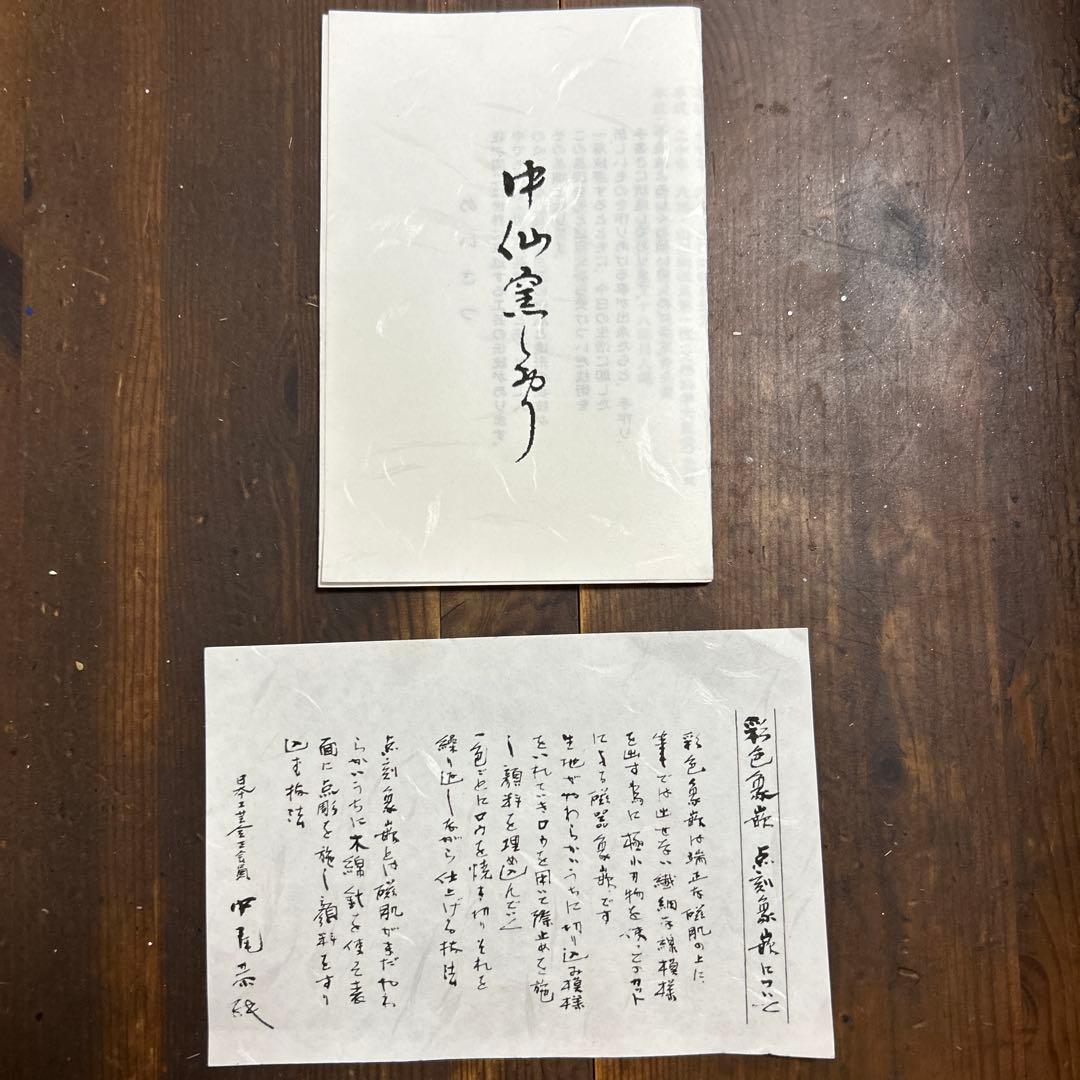 中仙窯しおり
彩色象嵌 点刻象嵌について
彩色象嵌は端正な磁肌の上に
筆では出せない繊細な線模様
を出す為に極小刃物を使ってカット
による磁器象嵌です
生地がやわらかいうちに切り込み模様
をいれていきロウを用いて際止めを施
し顔料を埋め込んでいく
一色ごとにロウを焼き切りそれを
繰り返しながら仕上げる技法
点刻象嵌とは磁肌がまだやわ
らかいうちに木綿針を使って表
面に点彫を施し顔料をすり
込む技法
日本工芸会正会員 中尾恭純